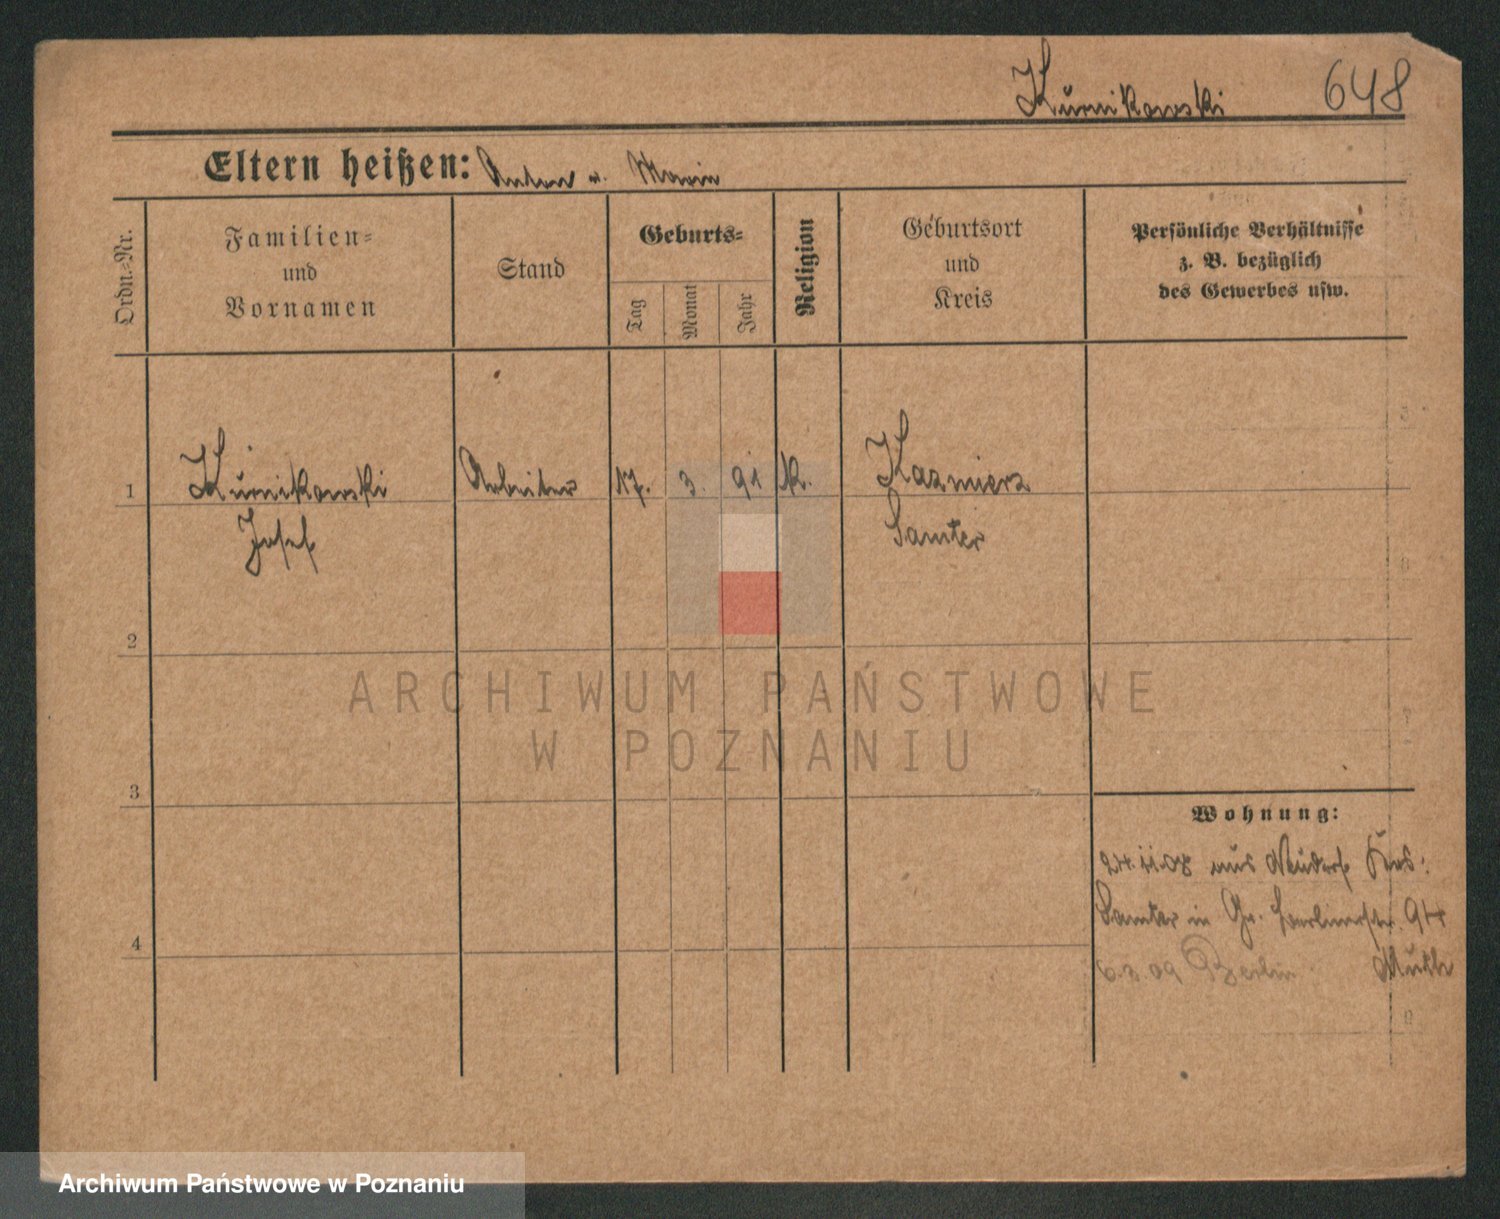 Kurnikowski 648
Eltern heißen: Anton u. Maria
Ordn.-Nr.
Familien-
und
Vornamen
Stand
Geburts-
Tag
Monat
Jahr
Religion
Geburtsort
und
Kreis
Persönliche Verhältnisse
z. B. bezüglich
des Gewerbes usw.
1 Kurnikowski Arbeiter 17. 3. 91 k. Kazmierz
Josef Samter
2
3
4
Wohnung:
24.11.08 aus Neudorf Krs.
Samter in Gr. Berlinerstr. 94
6.3.09 Berlin
ARCHIWUM PAŃSTWOWE
W POZNANIU
Archiwum Państwowe w Poznaniu